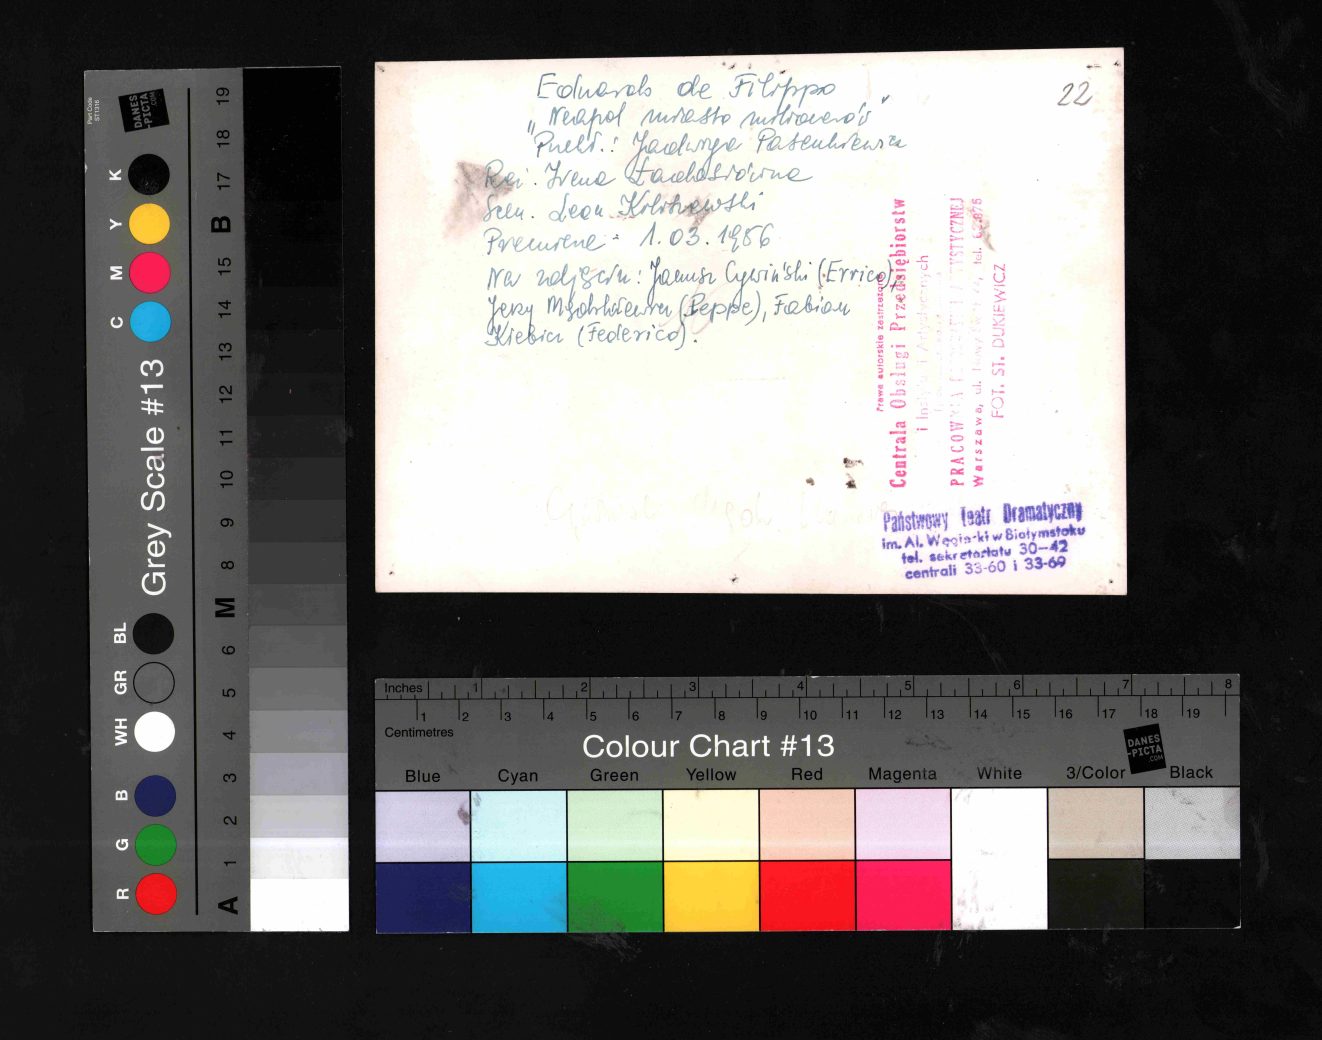 Eduardo de Filippo
„Neapol miasto milionerów”
Przekł.: Jadwiga Pasenkiewicz
Reż. Irena Ładosiówna
Scen. Leon
Premiera - 1.03.1956
Na zdjęciu: Janusz Cywiński (Errico),
Jerzy (Peppe), Fabian
Kiebicz (Federico).
22
Prawa autorskie zastrzeżone
Centrala Obsługi Przedsiębiorstw
i Artystycznych
PRACOWNIA
Warszawa, ul. tel.
FOT. ST. DUKIEWICZ
Państwowy Teatr Dramatyczny
im. Al. Węgierki w Białymstoku
tel. sekretariatu 30-42
centrali 33-60 i 33-69
Part Code
ST1316
DANES
-PICTA
.COM
Grey Scale #13
R G B WH GR BL C M Y K
A 1 2 3 4 5 6 M 8 9 10 11 12 13 14 15 B 17 18 19
Inches 1 2 3 4 5 6 7 8
1 2 3 4 5 6 7 8 9 10 11 12 13 14 15 16 17 18 19
Centimetres
Colour Chart #13
DANES
-PICTA
.COM
Blue Cyan Green Yellow Red Magenta White 3/Color Black